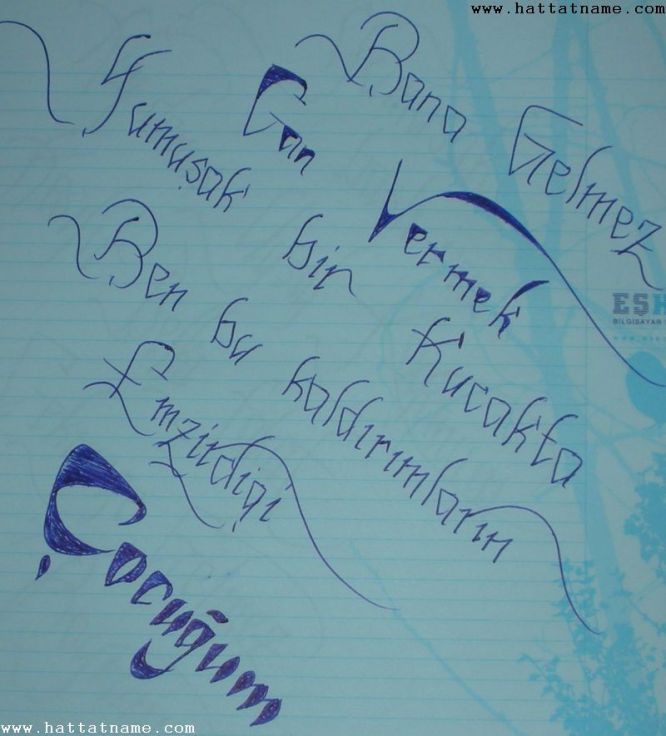 www.hattatname.com
Bana Gelmez
Can Vermek
Yumuşak bir Kucakta
Ben bu kaldırımların
Emzirdiği
Çocuğum
BİLGİSAYAR
www.hattatname.com